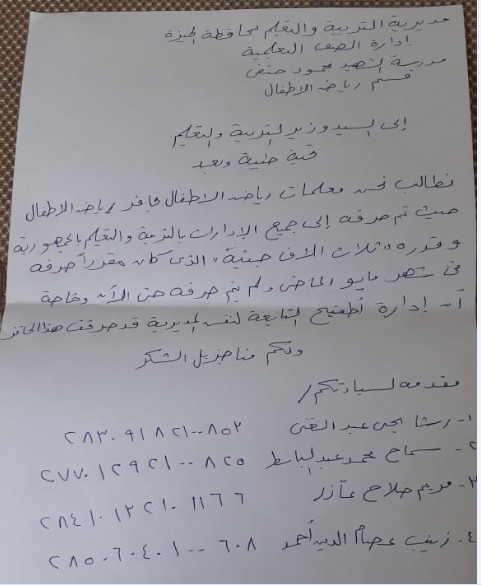 مديرية التربية والتعليم بمحافظة الجيزة
إدارة الصف التعليمية
مدرسة الشهيد محمود حنفى
قسم رياض الاطفال
إلى السيد وزير التربية والتعليم
تحية طيبة وبعد
نطالب نحن معلمات رياض الاطفال بحافز رياض الاطفال
حيث تم صرفه إلى جميع الإدارات بالتربية والتعليم بالجمهورية
وقدره "ثلاث الاف جنية" الذى كان مقرراً صرفه
فى شهر مايو الماضى ولم يتم صرفه حتى الأن وخاصة
أن إدارة أطفيح التابعة لنفس المديرية قد صرفت هذا الحافز
ولكم منا جزيل الشكر
مقدمه لسيادتكم /
١- رشا يحى عبد الغنى ٢٨٣٠٩١٨٢١٠٠٨٥٢
٢- سماح محمد عبد الباسط ٢٧٧٠١٢٩٢١٠٠٨٢٥
٣- مريم صلاح عازر ٢٨٤١٠١٢٢١٠١١٦٦
٤- زينب عصام الدين أحمد ٢٨٥٠٦٠٤٠١٠٠٦٠٨